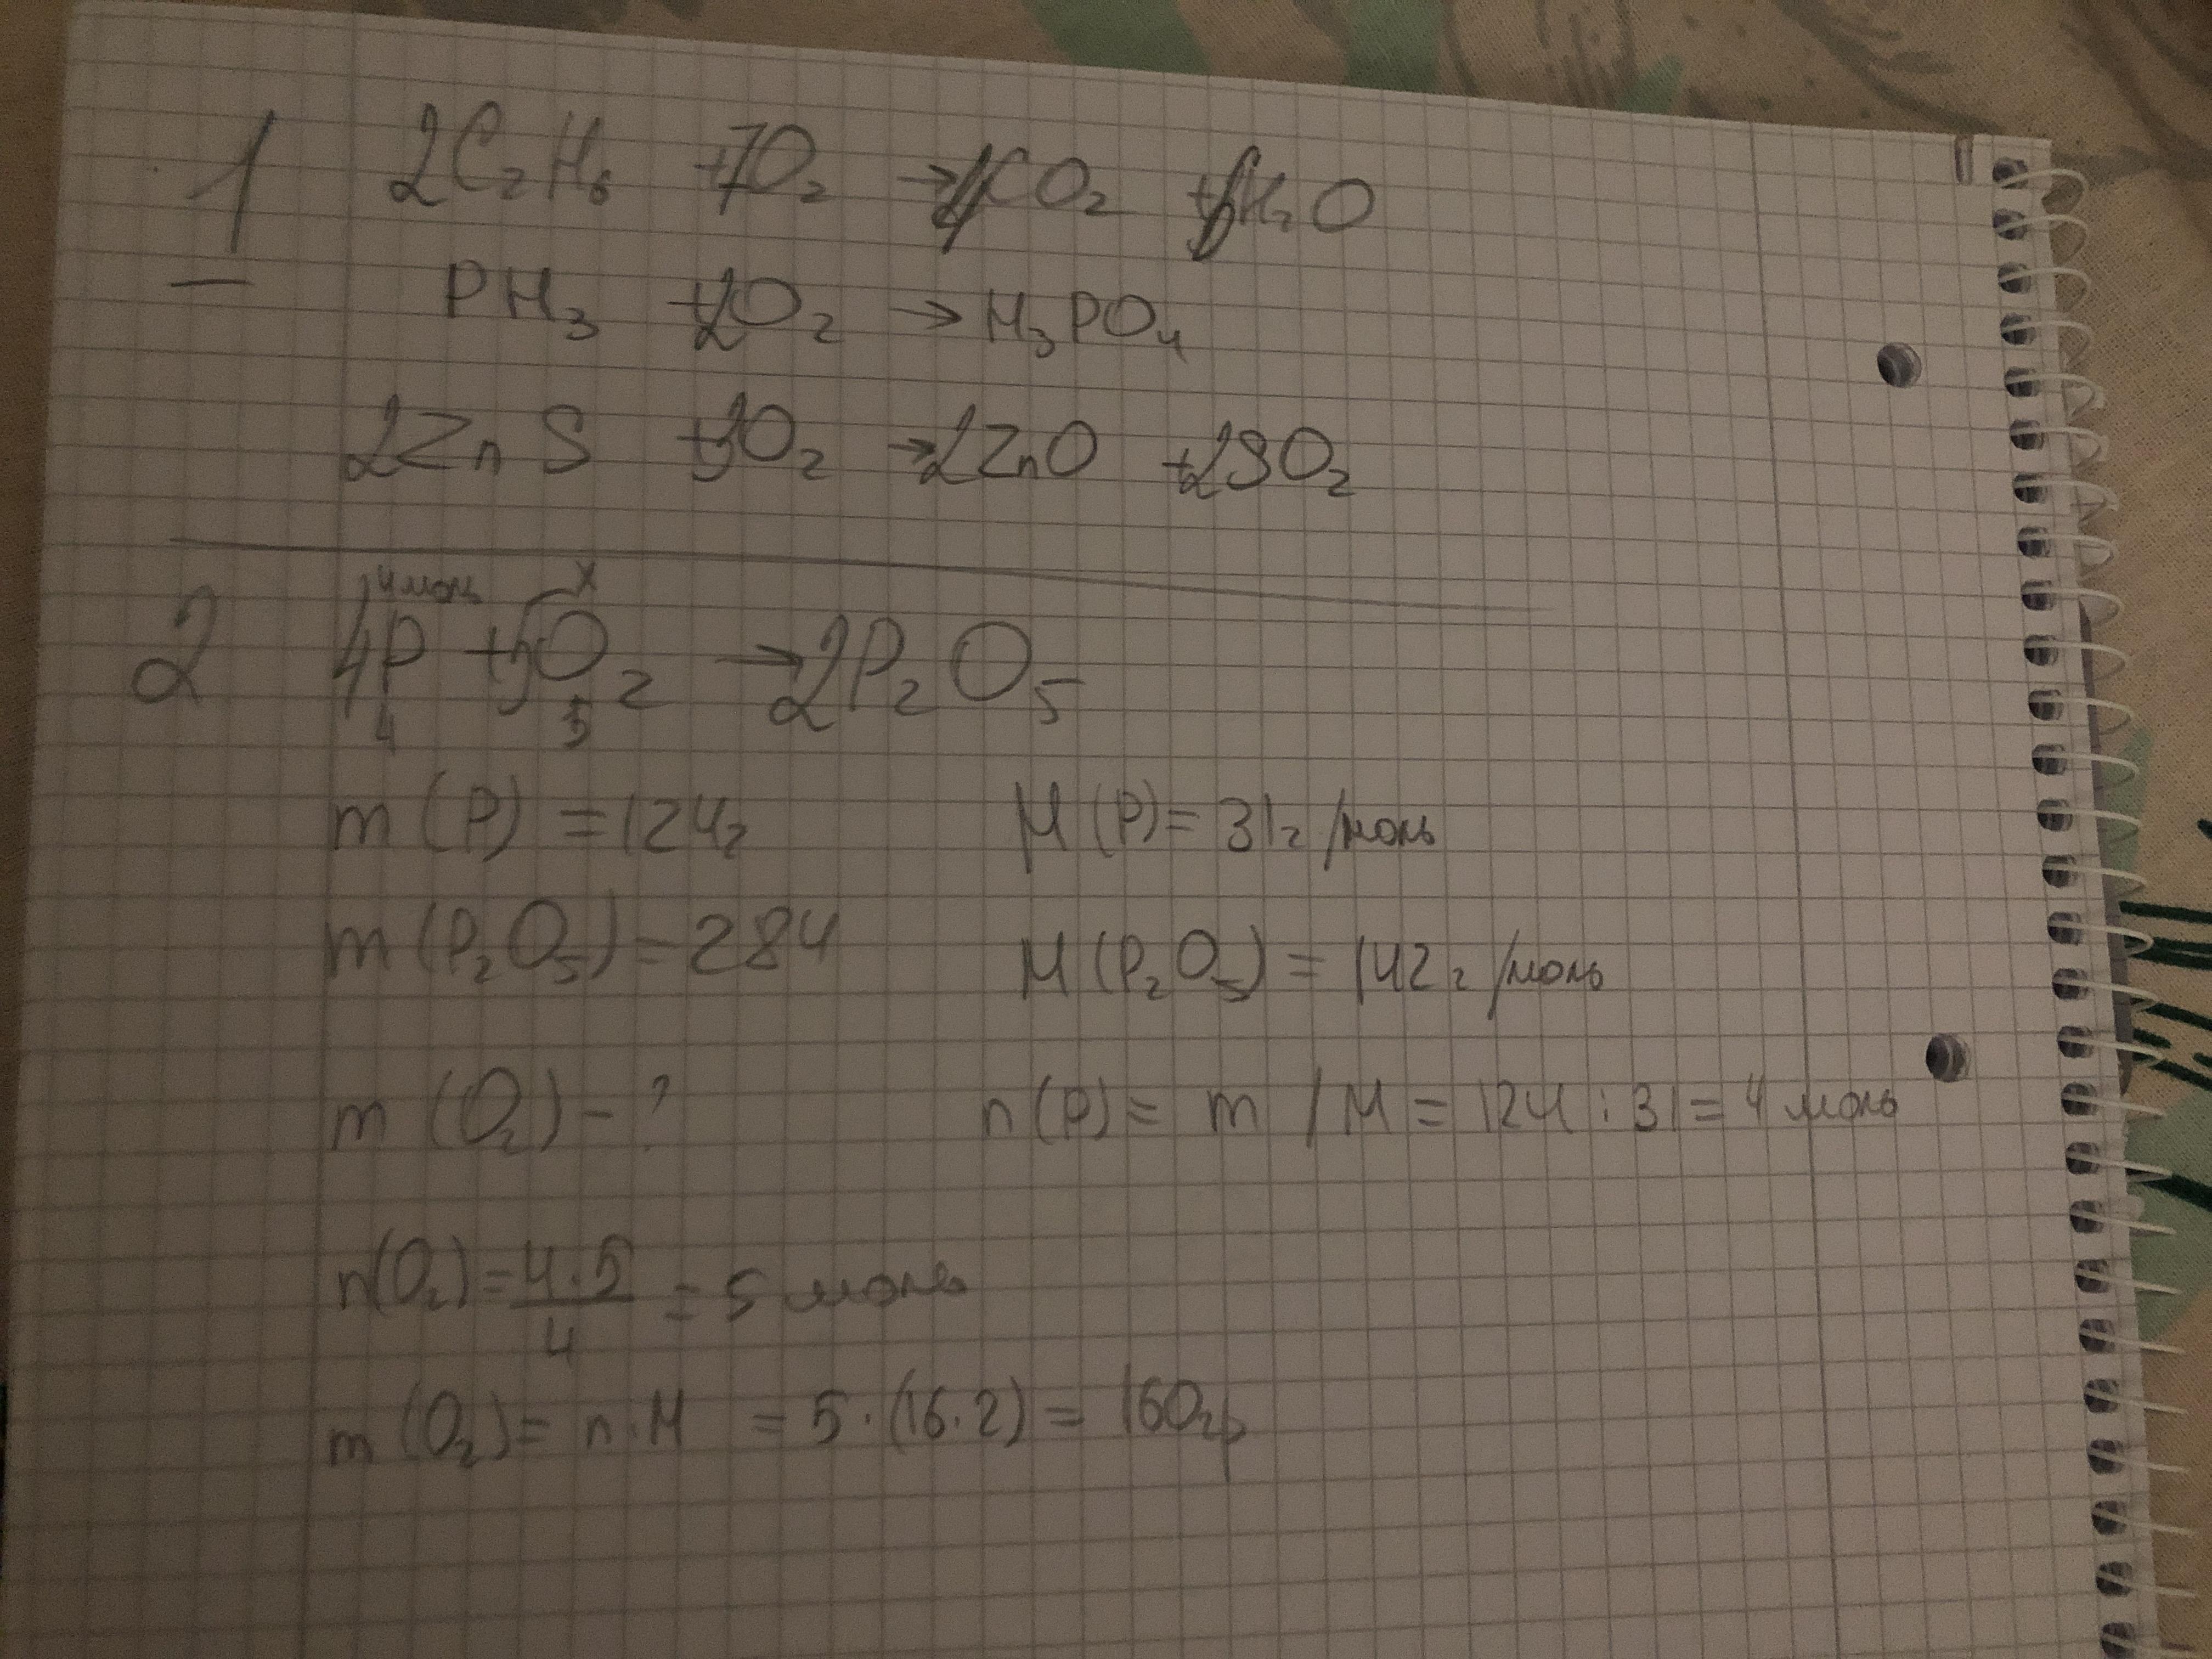 1 2C₂H₆ + 7O₂ → 4CO₂ + 6H₂O
PH₃ + 2O₂ → H₃PO₄
2ZnS + 3O₂ → 2ZnO + 2SO₂
4моль x
2 4P + 5O₂ → 2P₂O₅
4 5
m(P) = 124г M(P) = 31г/моль
m(P₂O₅) = 284 M(P₂O₅) = 142г/моль
m(O₂) - ? n(P) = m / M = 124 : 31 = 4 моль
n(O₂) = 4·5 / 4 = 5 моль
m(O₂) = n·M = 5·(16·2) = 160гр